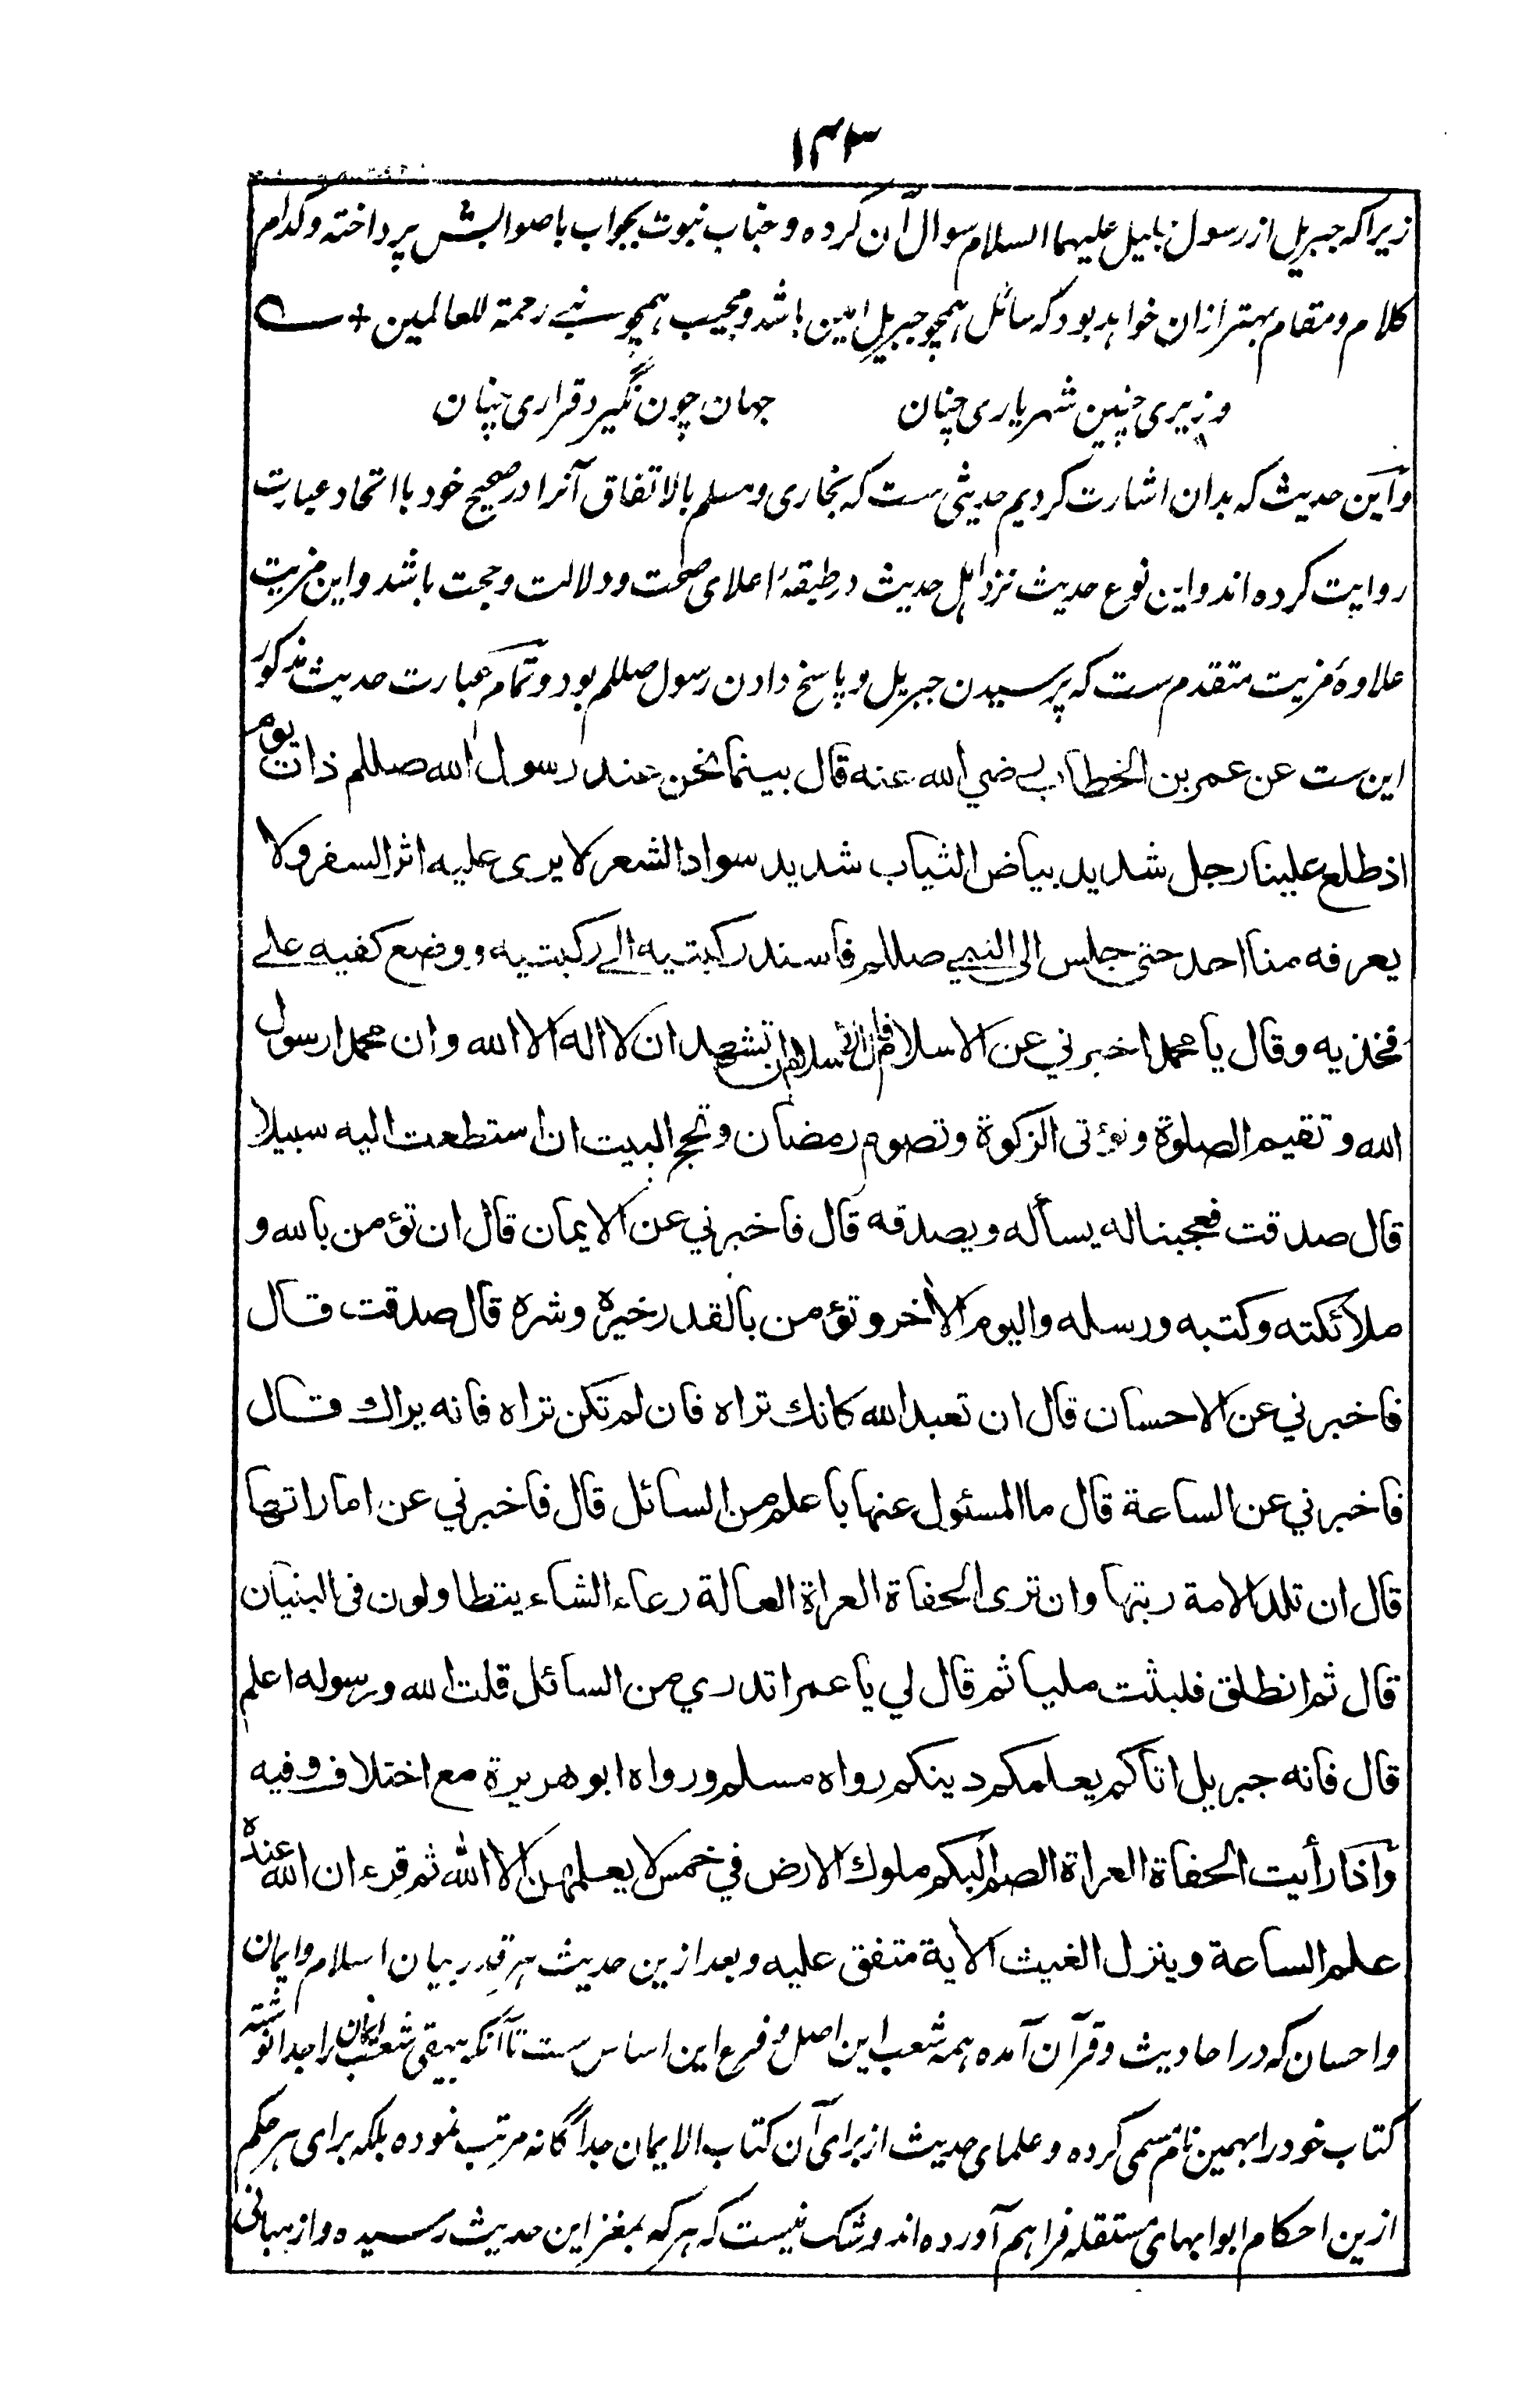 ۱۴۳
زیراکه جبریل از رسول جلیل علیهما السلام سوال آن کرده و جناب نبوت بجواب باصوابش پرداخته و کدام
کلام و مقام بهتر ازان خواهد بود که سائل همچو جبریل امین باشد و مجیب همچو نبی رحمة للعالمین +
وزیری چنین شهریاری چنان جهان چون نگیرد قراری چنان
و این حدیث که بدان اشارت کردیم حدیثی ست که بخاری و مسلم بالاتفاق آنرا در صحیح خود با اتحاد عبارت
روایت کرده اند و این نوع حدیث نزد اهل حدیث در طبقهٔ اعلای صحت و دلالت و حجت باشد و این مزیت
علاوهٔ مزیت متقدم ست که پرسیدن جبریل و پاسخ دادن رسول صللم بود و تمام عبارت حدیث مذکور
این ست عن عمر بن الخطاب رضي الله عنه قال بینما نحن عند رسول الله صللم ذات یوم
اذ طلع علینا رجل شدید بیاض الثیاب شدید سواد الشعر لا یری علیه اثر السفر ولا
یعرفه منا احد حتی جلس الی النبي صللم فاسند رکبتیه الی رکبتیه ووضع کفیه علی
فخذیه وقال یا محمد اخبرني عن الاسلام قال الاسلام ان تشهد ان لا اله الا الله وان محمدا رسول
الله وتقیم الصلوة وتؤتی الزکوة وتصوم رمضان وتحج البیت ان استطعت الیه سبیلا
قال صدقت فعجبنا له یسأله ویصدقه قال فاخبرني عن الایمان قال ان تؤمن بالله و
ملائکته وکتبه ورسله والیوم الاخر وتؤمن بالقدر خیره وشره قال صدقت قال
فاخبرني عن الاحسان قال ان تعبد الله کانك تراه فان لم تکن تراه فانه یراك قال
فاخبرني عن الساعة قال ما المسئول عنها باعلم من السائل قال فاخبرني عن اماراتها
قال ان تلد الامة ربتها وان تری الحفاة العراة العالة رعاء الشاء یتطاولون فی البنیان
قال ثم انطلق فلبثت ملیا ثم قال لي یا عمر اتدري من السائل قلت الله ورسوله اعلم
قال فانه جبریل اتاکم یعلمکم دینکم رواه مسلم ورواه ابو هریرة مع اختلاف وفیه
واذا رأیت الحفاة العراة الصم البکم ملوك الارض في خمس لا یعلمهن الا الله ثم قرء ان الله عنده
علم الساعة وینزل الغیث الایة متفق علیه و بعد ازین حدیث هر قدر بیان اسلام و ایمان
و احسان که در احادیث و قرآن آمده همه شعب این اصل و فرع این اساس ست تا آنکه بیهقی شعب ایمان را جدا نوشته
کتاب خود را بهمین نام مسمی کرده و علمای حدیث از برای آن کتاب الایمان جداگانه مرتب نموده بلکه برای هر حکم
ازین احکام ابوابهای مستقله فراهم آورده اند و شک نیست که هر که بمغز این حدیث رسیده و از مبانی